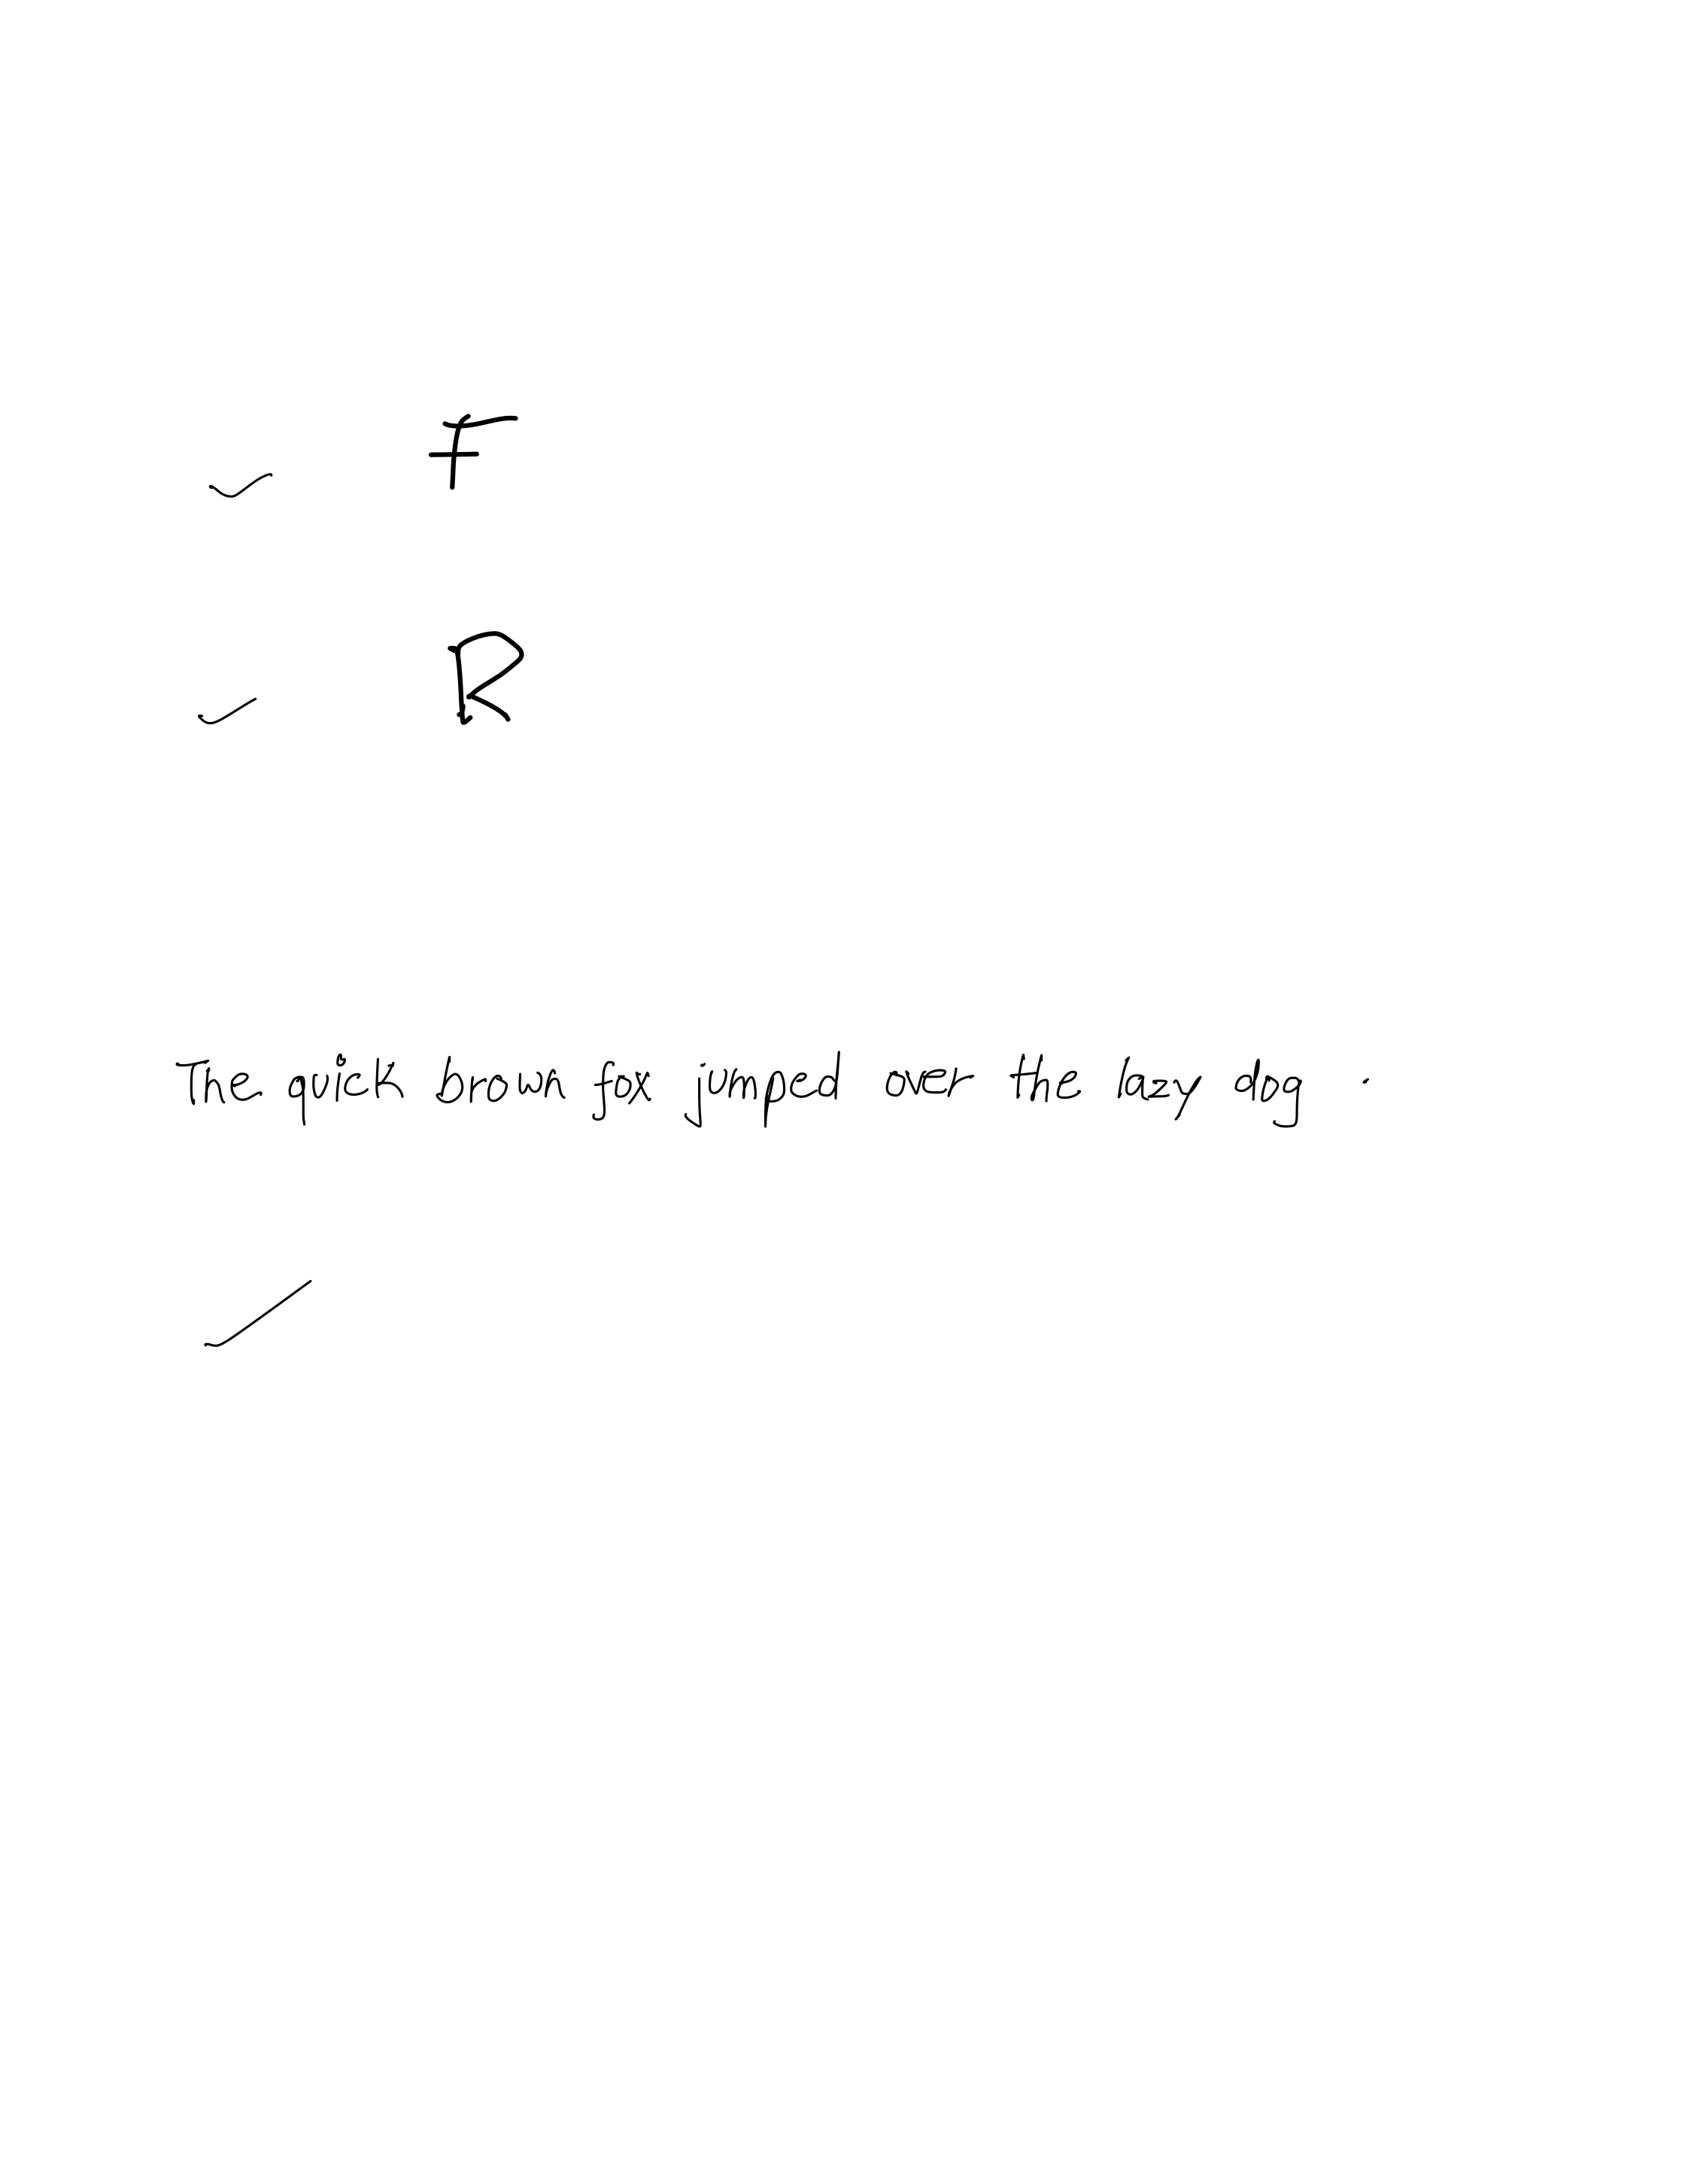 ✓ F
✓ R
The quick brown fox jumped over the lazy dog .
✓